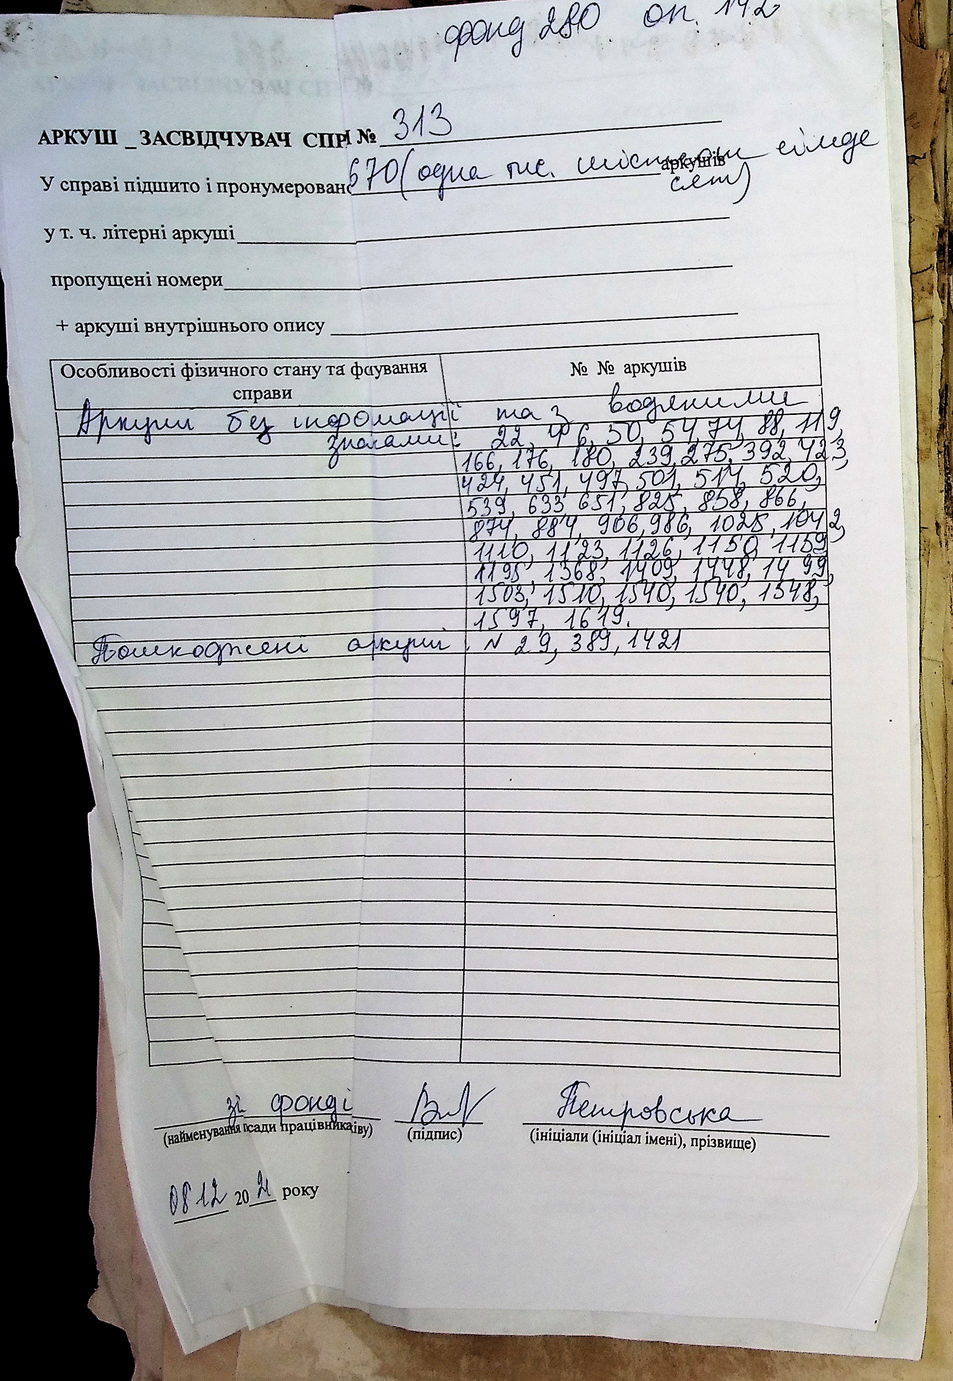 фонд 280 оп. 142
АРКУШ _ ЗАСВІДЧУВАЧ СПР № 313
У справі підшито і пронумерован 670 (одна тис. шістсот сімде
аркушів
сят)
у т. ч. літерні аркуші
пропущені номери
+ аркуші внутрішнього опису
Особливості фізичного стану та фоування
справи
№ № аркушів
Аркуші без інформації та з водяними
знаками: 22, 46, 50, 54, 74, 88, 119,
166, 176, 180, 239, 275, 392, 423,
424, 451, 497, 501, 514, 520,
539, 633 651, 825, 858, 866,
874, 884, 906, 986, 1025, 1042,
1110, 1123, 1126, 1150, 1159
1195, 1368, 1409, 1448, 1499,
1503, 1510, 1540, 1540, 1548,
1597, 1619.
Пошкоджені аркуші : N 29, 389, 1421
зі фонді
Петровська
(найменування посади працівника іву)
(підпис)
(ініціали (ініціал імені), прізвище)
08 12 2021 року